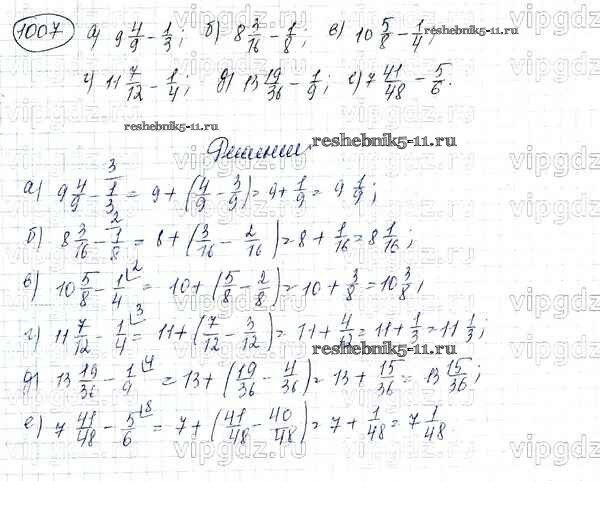 1007 а) 9 4/9 - 1/3; б) 8 3/16 - 1/8; в) 10 5/8 - 1/4;
г) 11 7/12 - 1/4; д) 13 19/36 - 1/9; е) 7 41/48 - 5/6.
reshebnik5-11.ru
Решение.
а) 9 4/9 - 1/3 (3 = 9 + (4/9 - 3/9) = 9 + 1/9 = 9 1/9;
б) 8 3/16 - 1/8 (2 = 8 + (3/16 - 2/16) = 8 + 1/16 = 8 1/16;
в) 10 5/8 - 1/4 (2 = 10 + (5/8 - 2/8) = 10 + 3/8 = 10 3/8;
г) 11 7/12 - 1/4 (3 = 11 + (7/12 - 3/12) = 11 + 4/12 = 11 + 1/3 = 11 1/3;
д) 13 19/36 - 1/9 (4 = 13 + (19/36 - 4/36) = 13 + 15/36 = 13 15/36;
е) 7 41/48 - 5/6 (8 = 7 + (41/48 - 40/48) = 7 + 1/48 = 7 1/48.
reshebnik5-11.ru
reshebnik5-11.ru
reshebnik5-11.ru
vipgdz